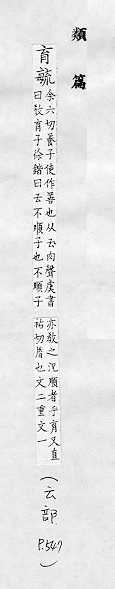 類篇
育毓
余六切養子使作善也从𠫓肉聲虞書
曰敎育子徐鍇曰𠫓不順子也不順子
亦敎之況順者乎育又直
祐切𦙍也文二重文一
(𠫓部 P.547)